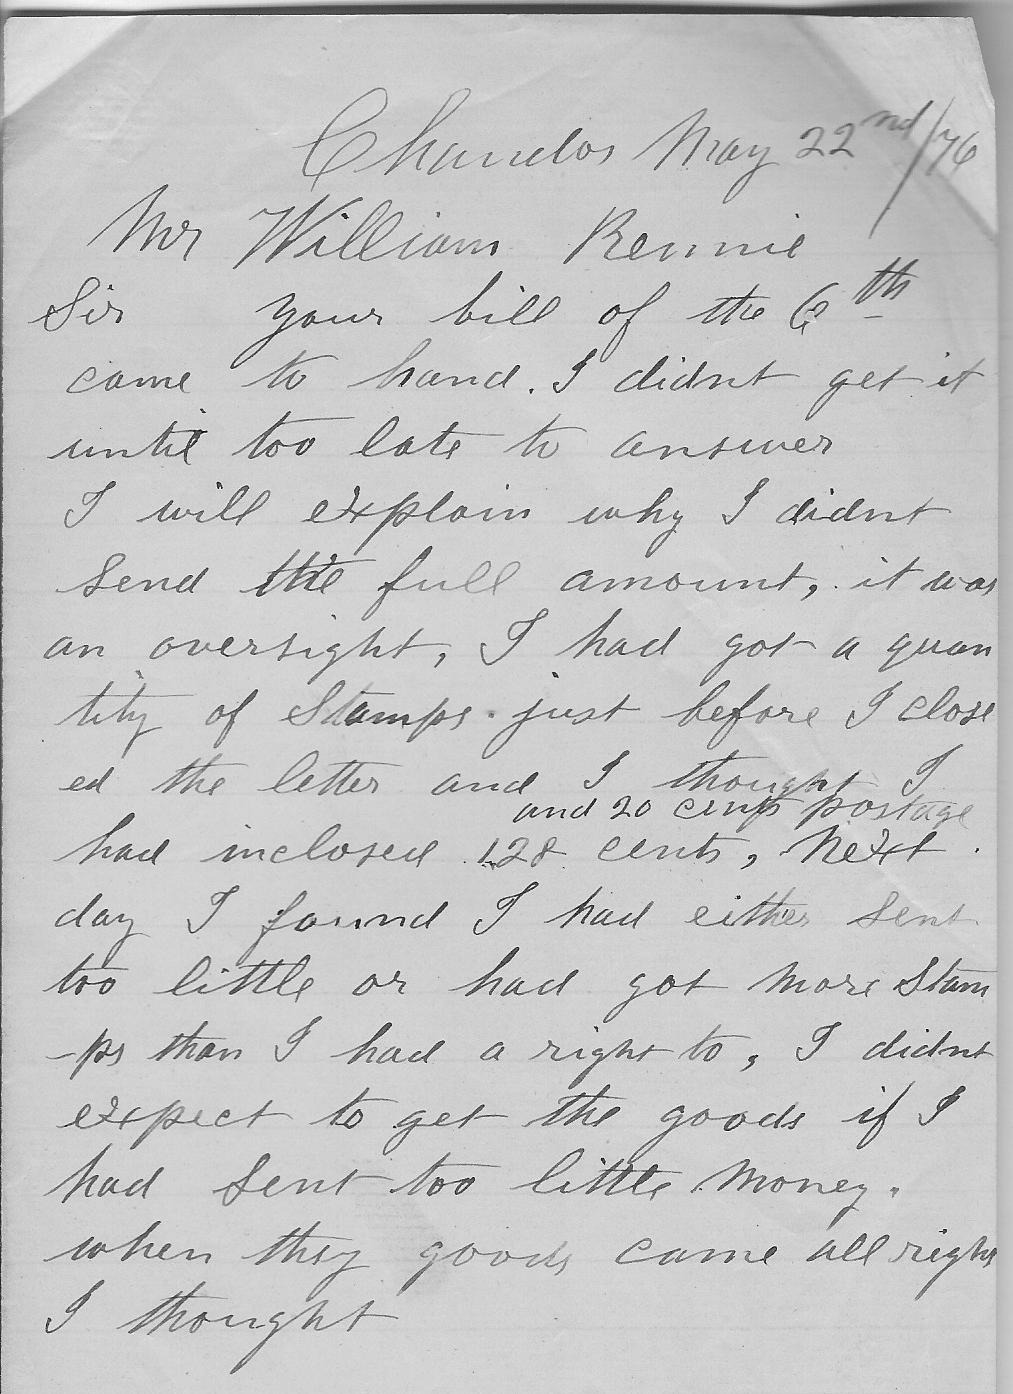 Chandos May 22nd/76
Mr William Rennie
Sir your bill of the 6th
came to hand. I didnt get it
until too late to answer
I will explain why I didnt
send the full amount, it was
an oversight, I had got a quan
tity of Stamps just before I close
ed the letter and I thought I
and 20 cents postage
had inclosed 128 cents, Next
day I found I had either sent
too little or had got more Stam
-ps than I had a right to, I didnt
expect to get the goods if I
had sent too little money.
when they goods came all right
I thought